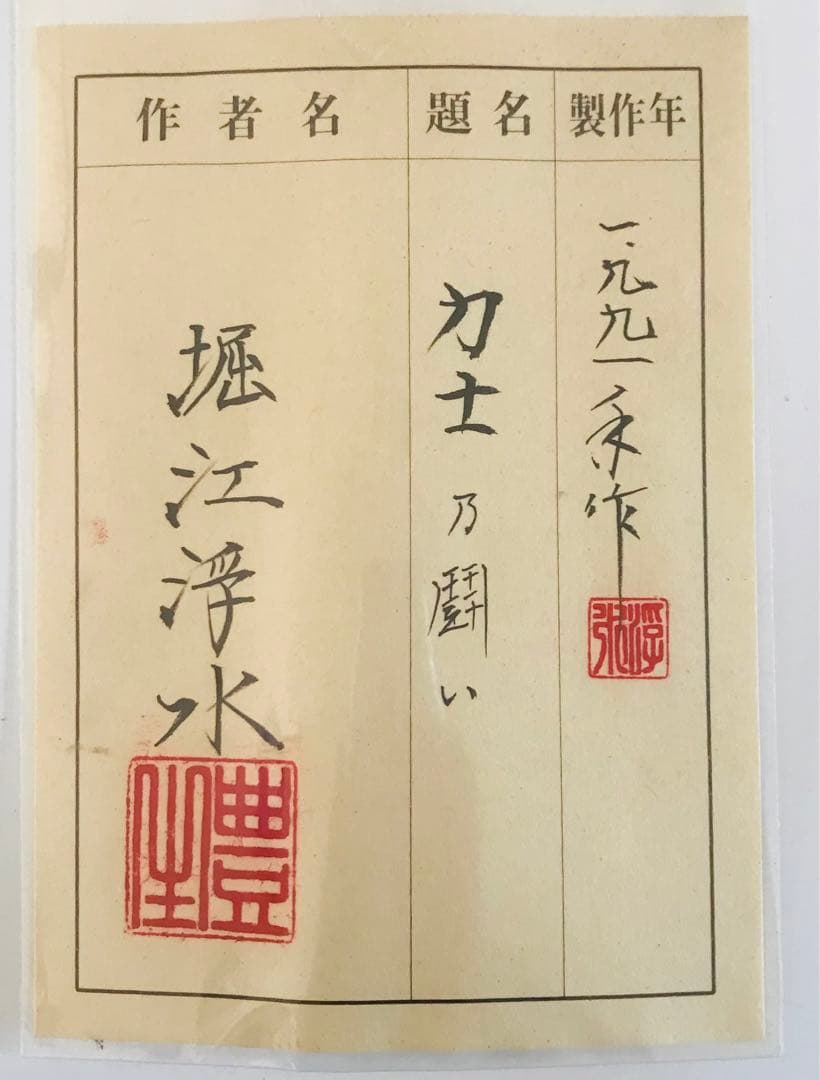 製作年
一九九一秊作
題名
力士乃鬪い
作者名
堀江浮水